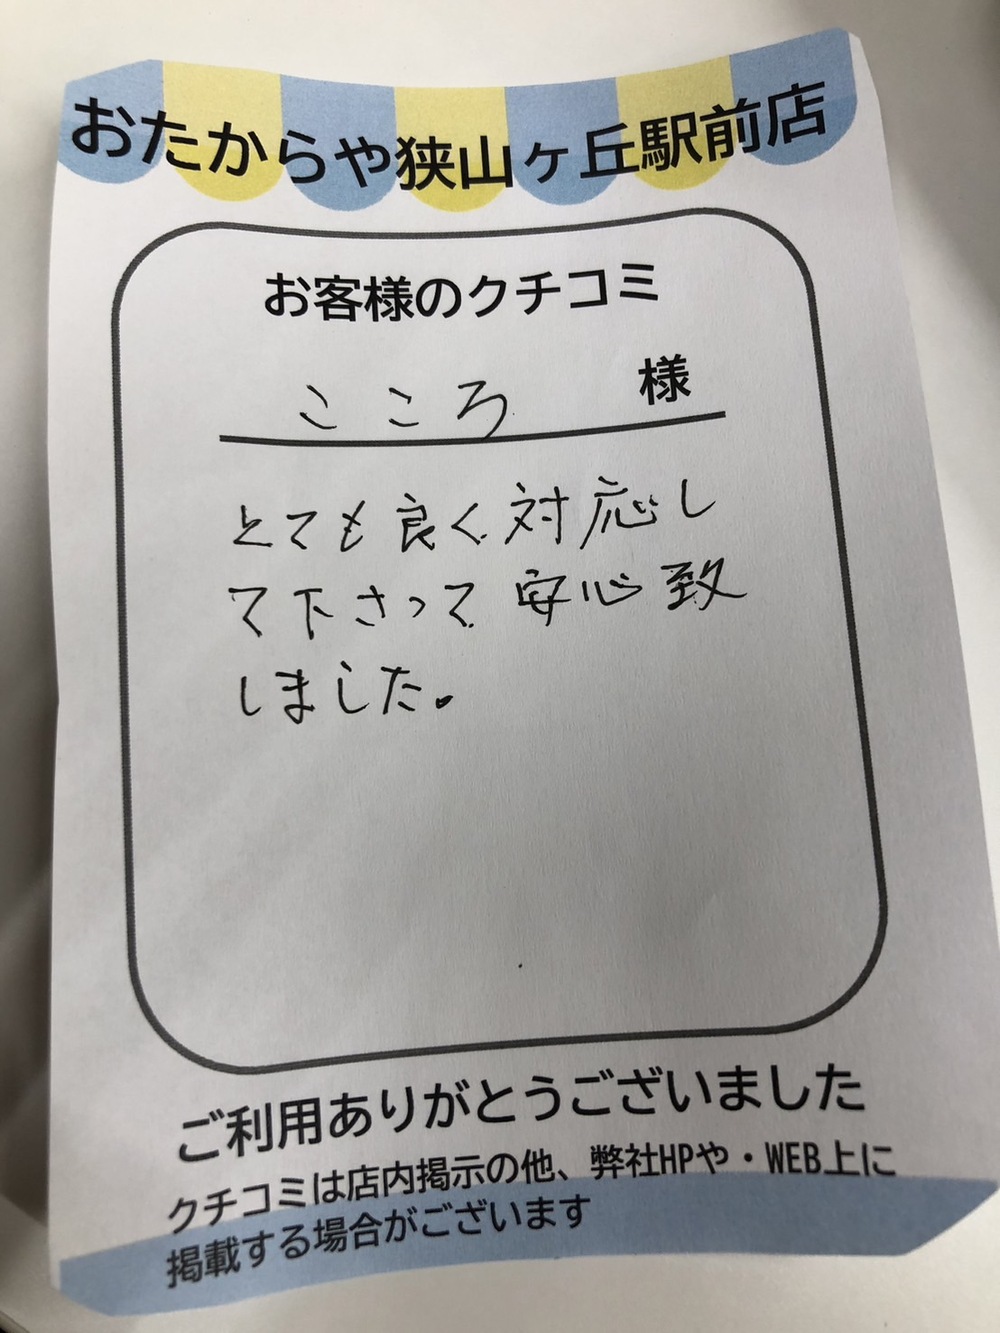 おたからや狭山ヶ丘駅前店
お客様のクチコミ
こころ 様
とても良く対応し
て下さって安心致
しました。
ご利用ありがとうございました
クチコミは店内掲示の他、弊社HPや・WEB上に
掲載する場合がございます